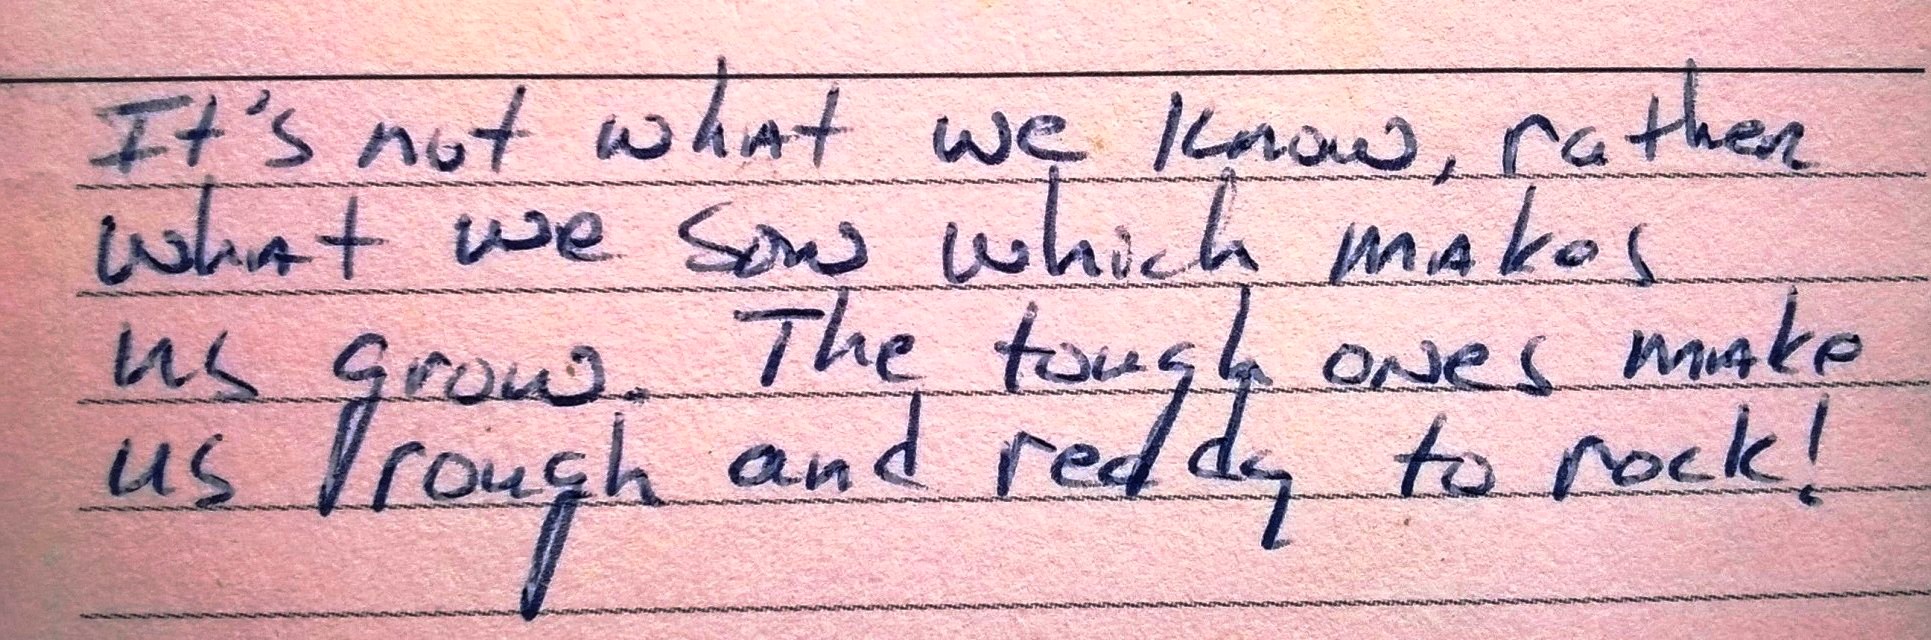 It's not what we know, rather
what we sow which makes
us grow. The tough ones make
us rough and ready to rock!